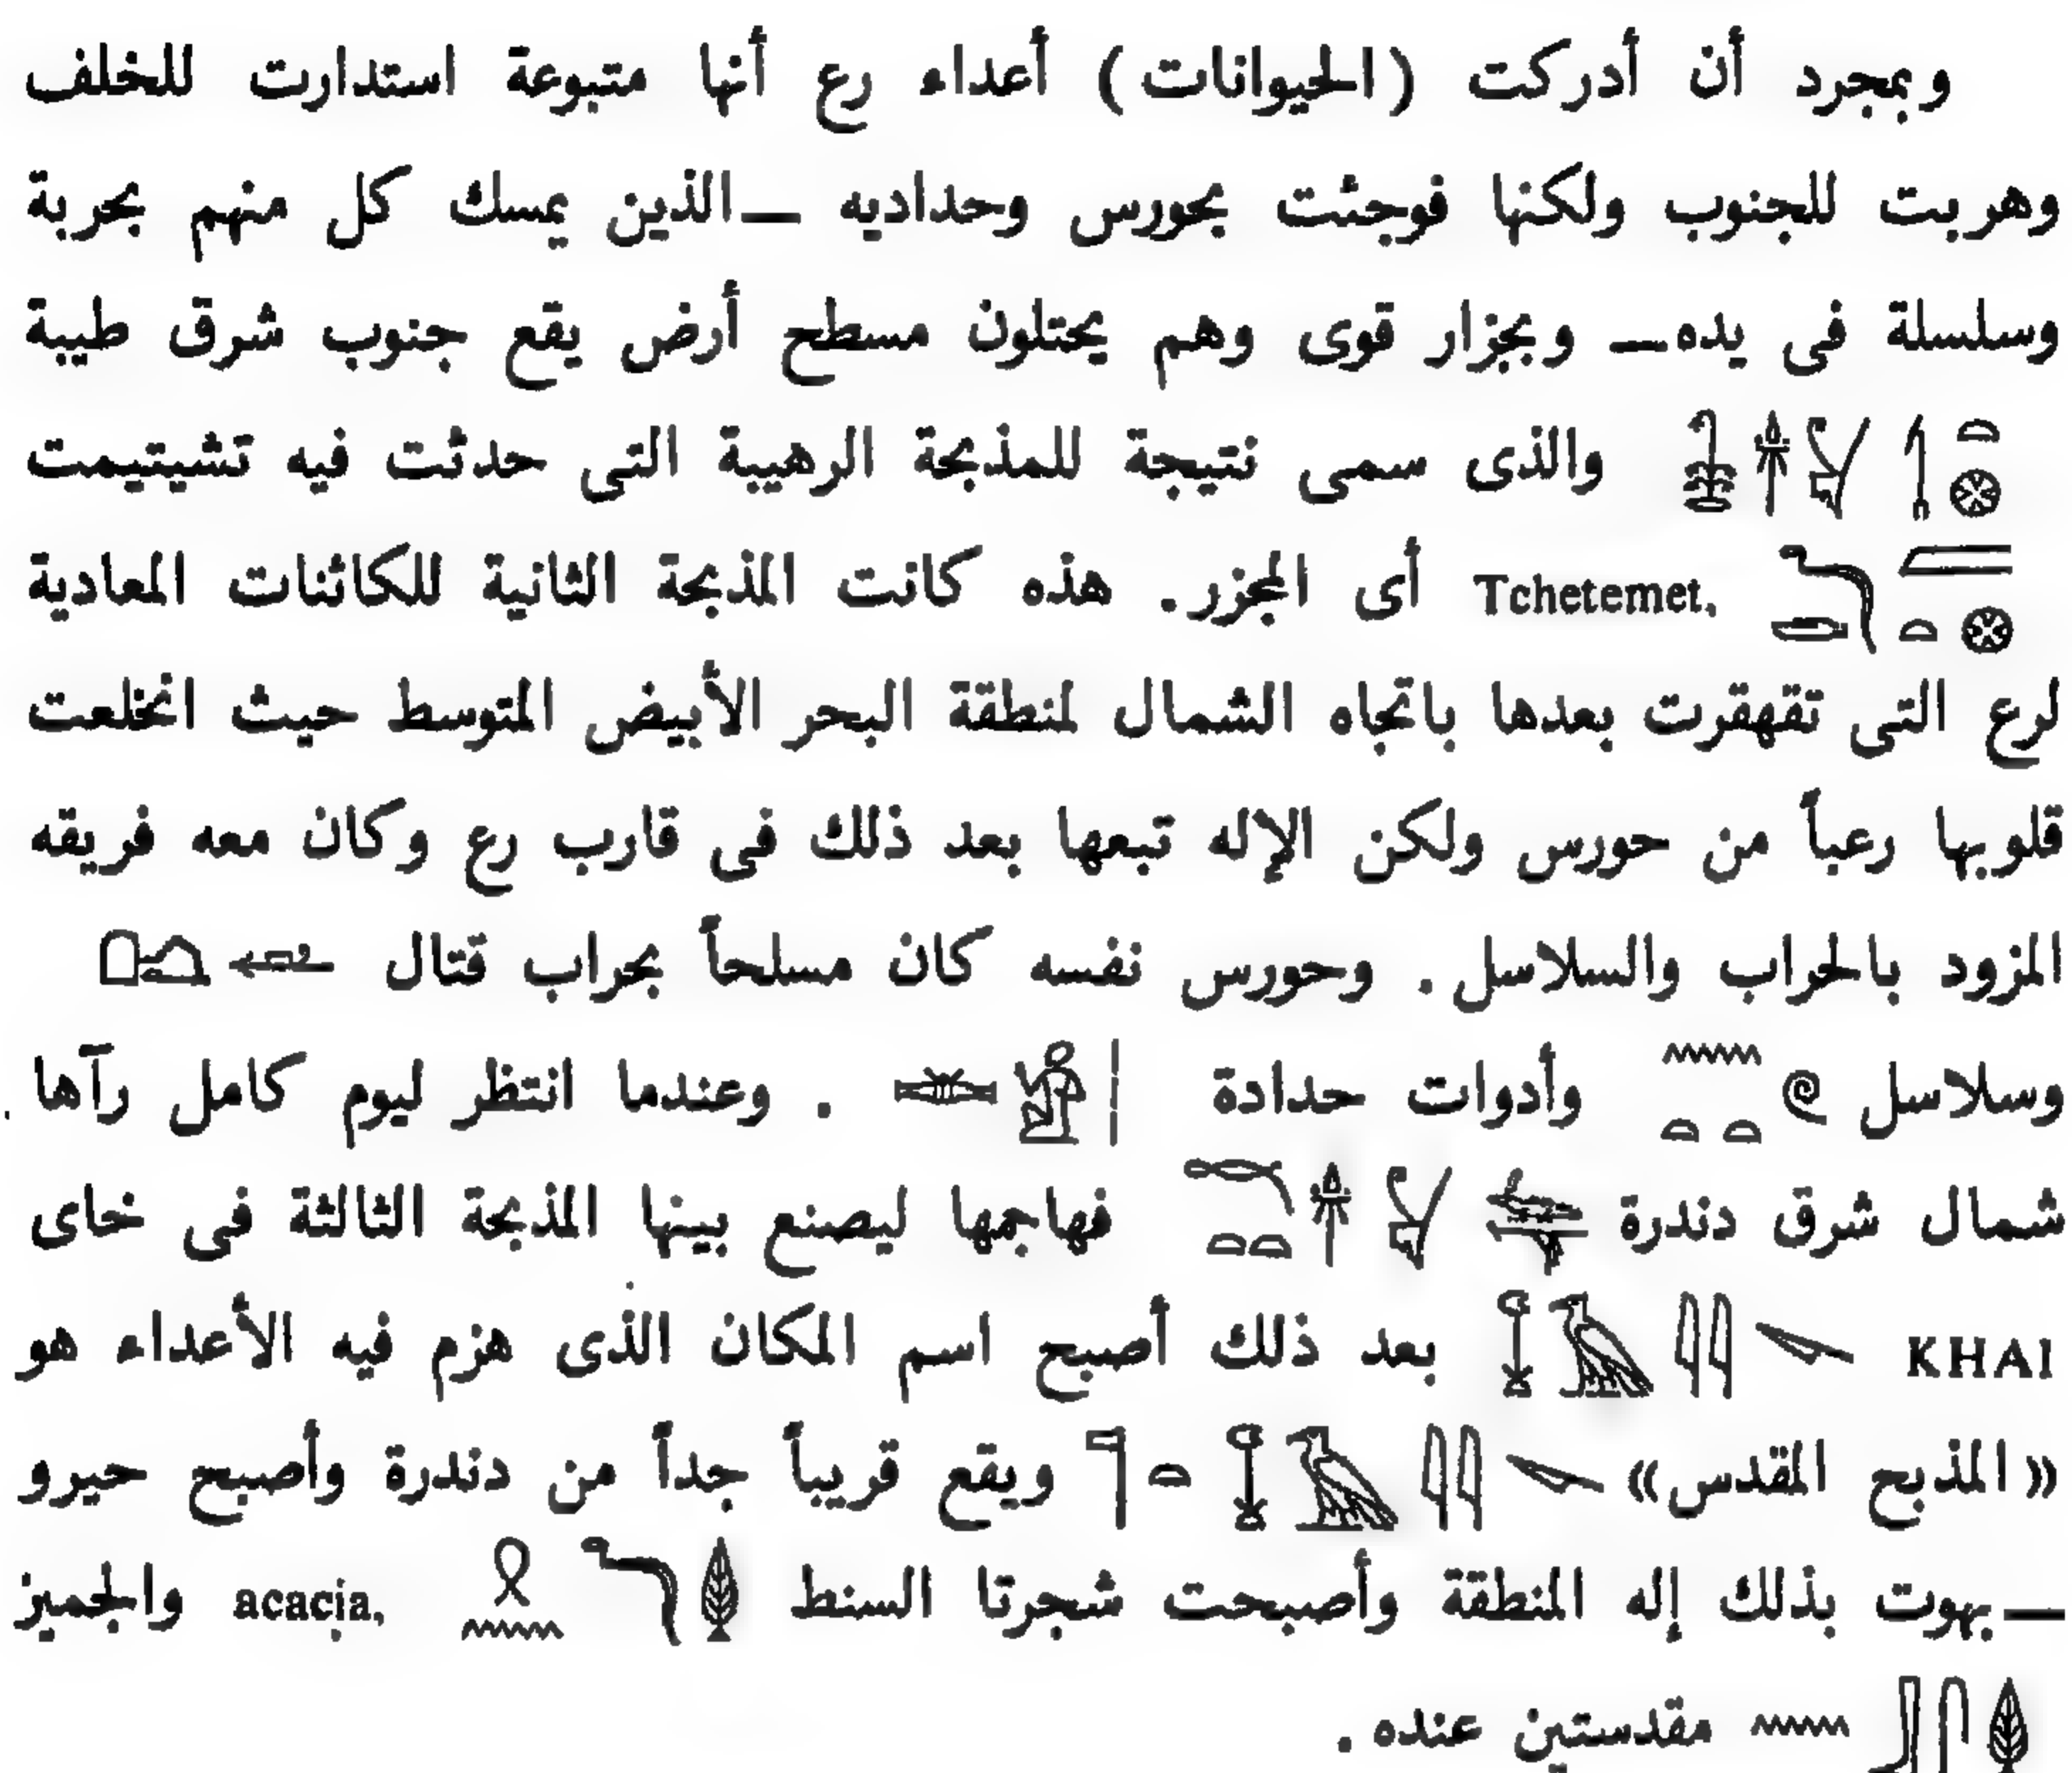 وبمجرد أن أدركت (الحيوانات) أعداء رع أنها متبوعة استدارت للخلف
وهربت للجنوب ولكنها فوجئت بحورس وحداديه ــ الذين يمسك كل منهم بحربة
وسلسلة فى يده ــ وبجزار قوى وهم يحتلون مسطح أرض يقع جنوب شرق طيبة
والذى سمى نتيجة للمذبحة الرهيبة التى حدثت فيه تشيتيمت
Tchetemet, أى المجزر. هذه كانت المذبحة الثانية للكائنات المعادية
لرع التى تقهقرت بعدها باتجاه الشمال لمنطقة البحر الأبيض المتوسط حيث انخلعت
قلوبها رعباً من حورس ولكن الإله تبعها بعد ذلك فى قارب رع وكان معه فريقه
المزود بالحراب والسلاسل. وحورس نفسه كان مسلحاً بحراب قتال
وسلاسل وأدوات حدادة . وعندما انتظر ليوم كامل رآها
شمال شرق دندرة فهاجمها ليصنع بينها المذبحة الثالثة فى خاى
KHAI بعد ذلك أصبح اسم المكان الذى هزم فيه الأعداء هو
«المذبح المقدس» ويقع قريباً جداً من دندرة وأصبح حيرو
ــ بهوت بذلك إله المنطقة وأصبحت شجرتا السنط acacia, والجميز
مقدستين عنده.